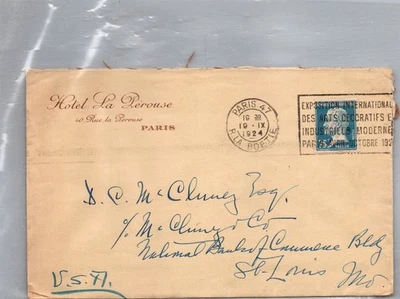 Hotel La Pérouse
40 Rue la Pérouse
PARIS
PARIS 47
19 30
19 - IX
1924
R. LA BOETIE
EXPOSITION INTERNATIONAL
DES ARTS DECORATIFS E
INDUSTRIELS MODERNE
D. C. McCluney Esq.
c/o McCluney & Co
National Bank of Commerce Bldg
St. Louis
Mo.
U.S.A.